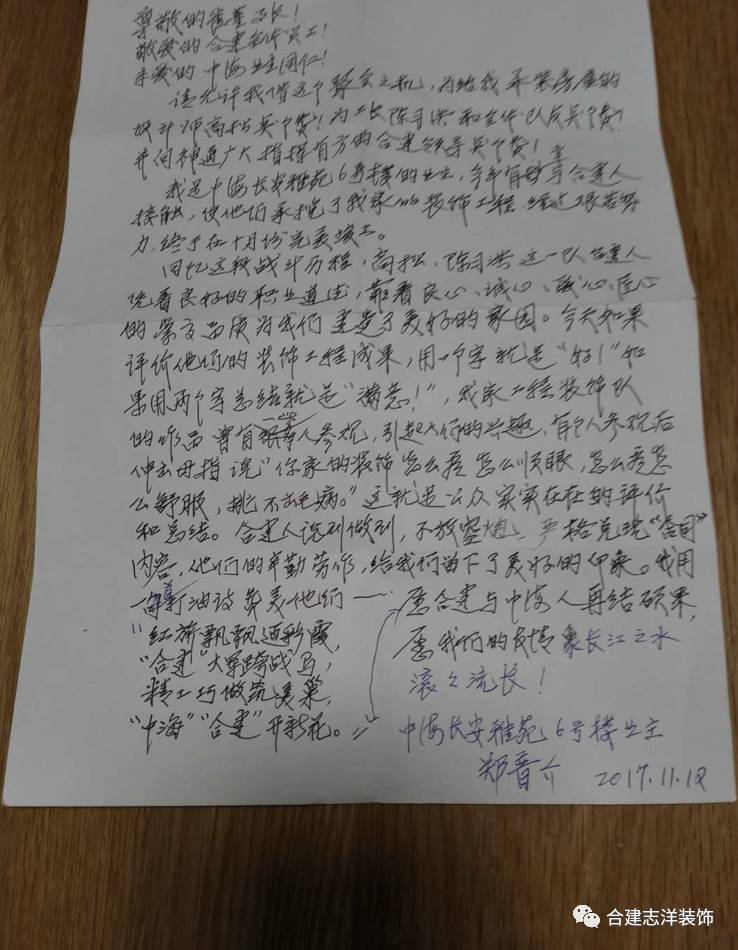 尊敬的董事长！
敬爱的合建全体员工！
亲爱的中海业主同仁！
请允许我借这个聚会之机，为给我承装房屋的
设计师高松点个赞！为工长陈习洪和全体队友点个赞！
并向神通广大指挥有方的合建领导点个赞！
我是中海长安雅苑6号楼的业主，今年有与合建人
接触，使他们承揽了我家的装饰工程，经过艰苦努
力，终于在十月份完美竣工。
回忆这段战斗历程，高松、陈习洪这一队合建人
凭着良好的职业道德，靠着良心、诚心、匠心
的品质为我们建造了美好的家园。今天如果
评价他们的装饰工程成果，用一个字就是“好！”如
果用两个字总结就是“满意！”，我家工程装饰队
的作品曾有一些人参观，引起人们的兴趣，有的人参观后
伸出母指说“你家的装饰怎么看怎么顺眼，怎么看怎
么舒服，挑不出毛病。”这就是公众实实在在的评价
和总结。合建人说到做到，不放空炮、严格兑现“合同”
内容，他们的辛勤劳作，给我们留下了美好的印象。我用
一首打油诗赞美他们——
“红旗飘飘迎彩霞，
“合建”大军跨战马，
精工巧做筑美巢，
“中海”“合建”开新花。”
愿合建与中海人再结硕果，
愿我们的友情象长江之水
滚滚流长！
中海长安雅苑6号楼业主
郑晋介
2017.11.12
合建志洋装饰